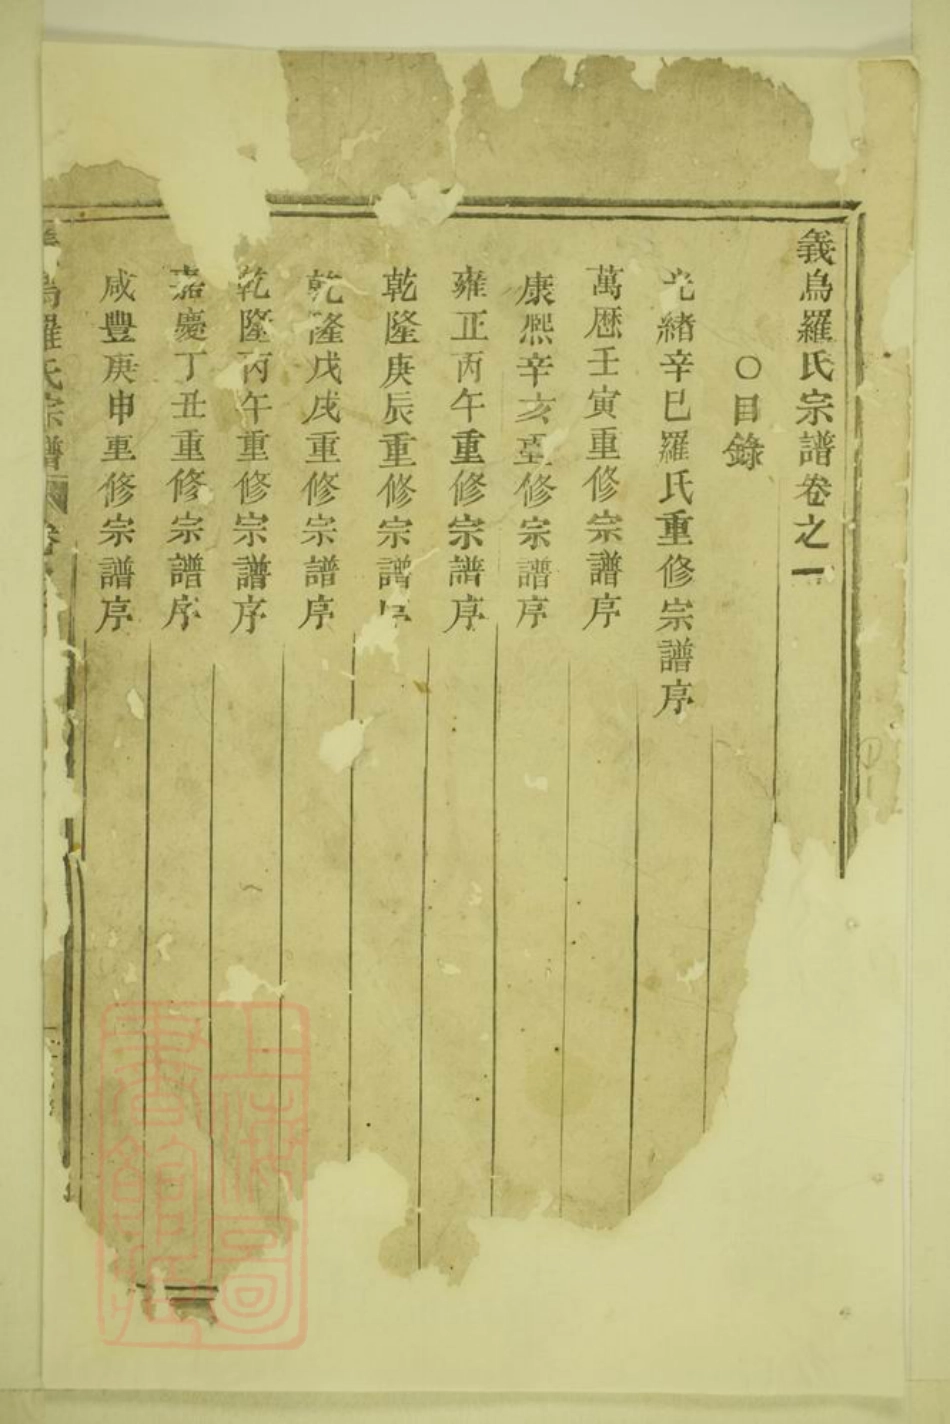 義烏羅氏宗譜卷之一
○目錄
光緒辛巳羅氏重修宗譜序
萬厯壬寅重修宗譜序
康熙辛亥重修宗譜序
雍正丙午重修宗譜序
乾隆庚辰重修宗譜序
乾隆戊戌重修宗譜序
乾隆丙午重修宗譜序
嘉慶丁丑重修宗譜序
咸豐庚申重修宗譜序
烏羅氏宗譜
卷
上海圖書館藏